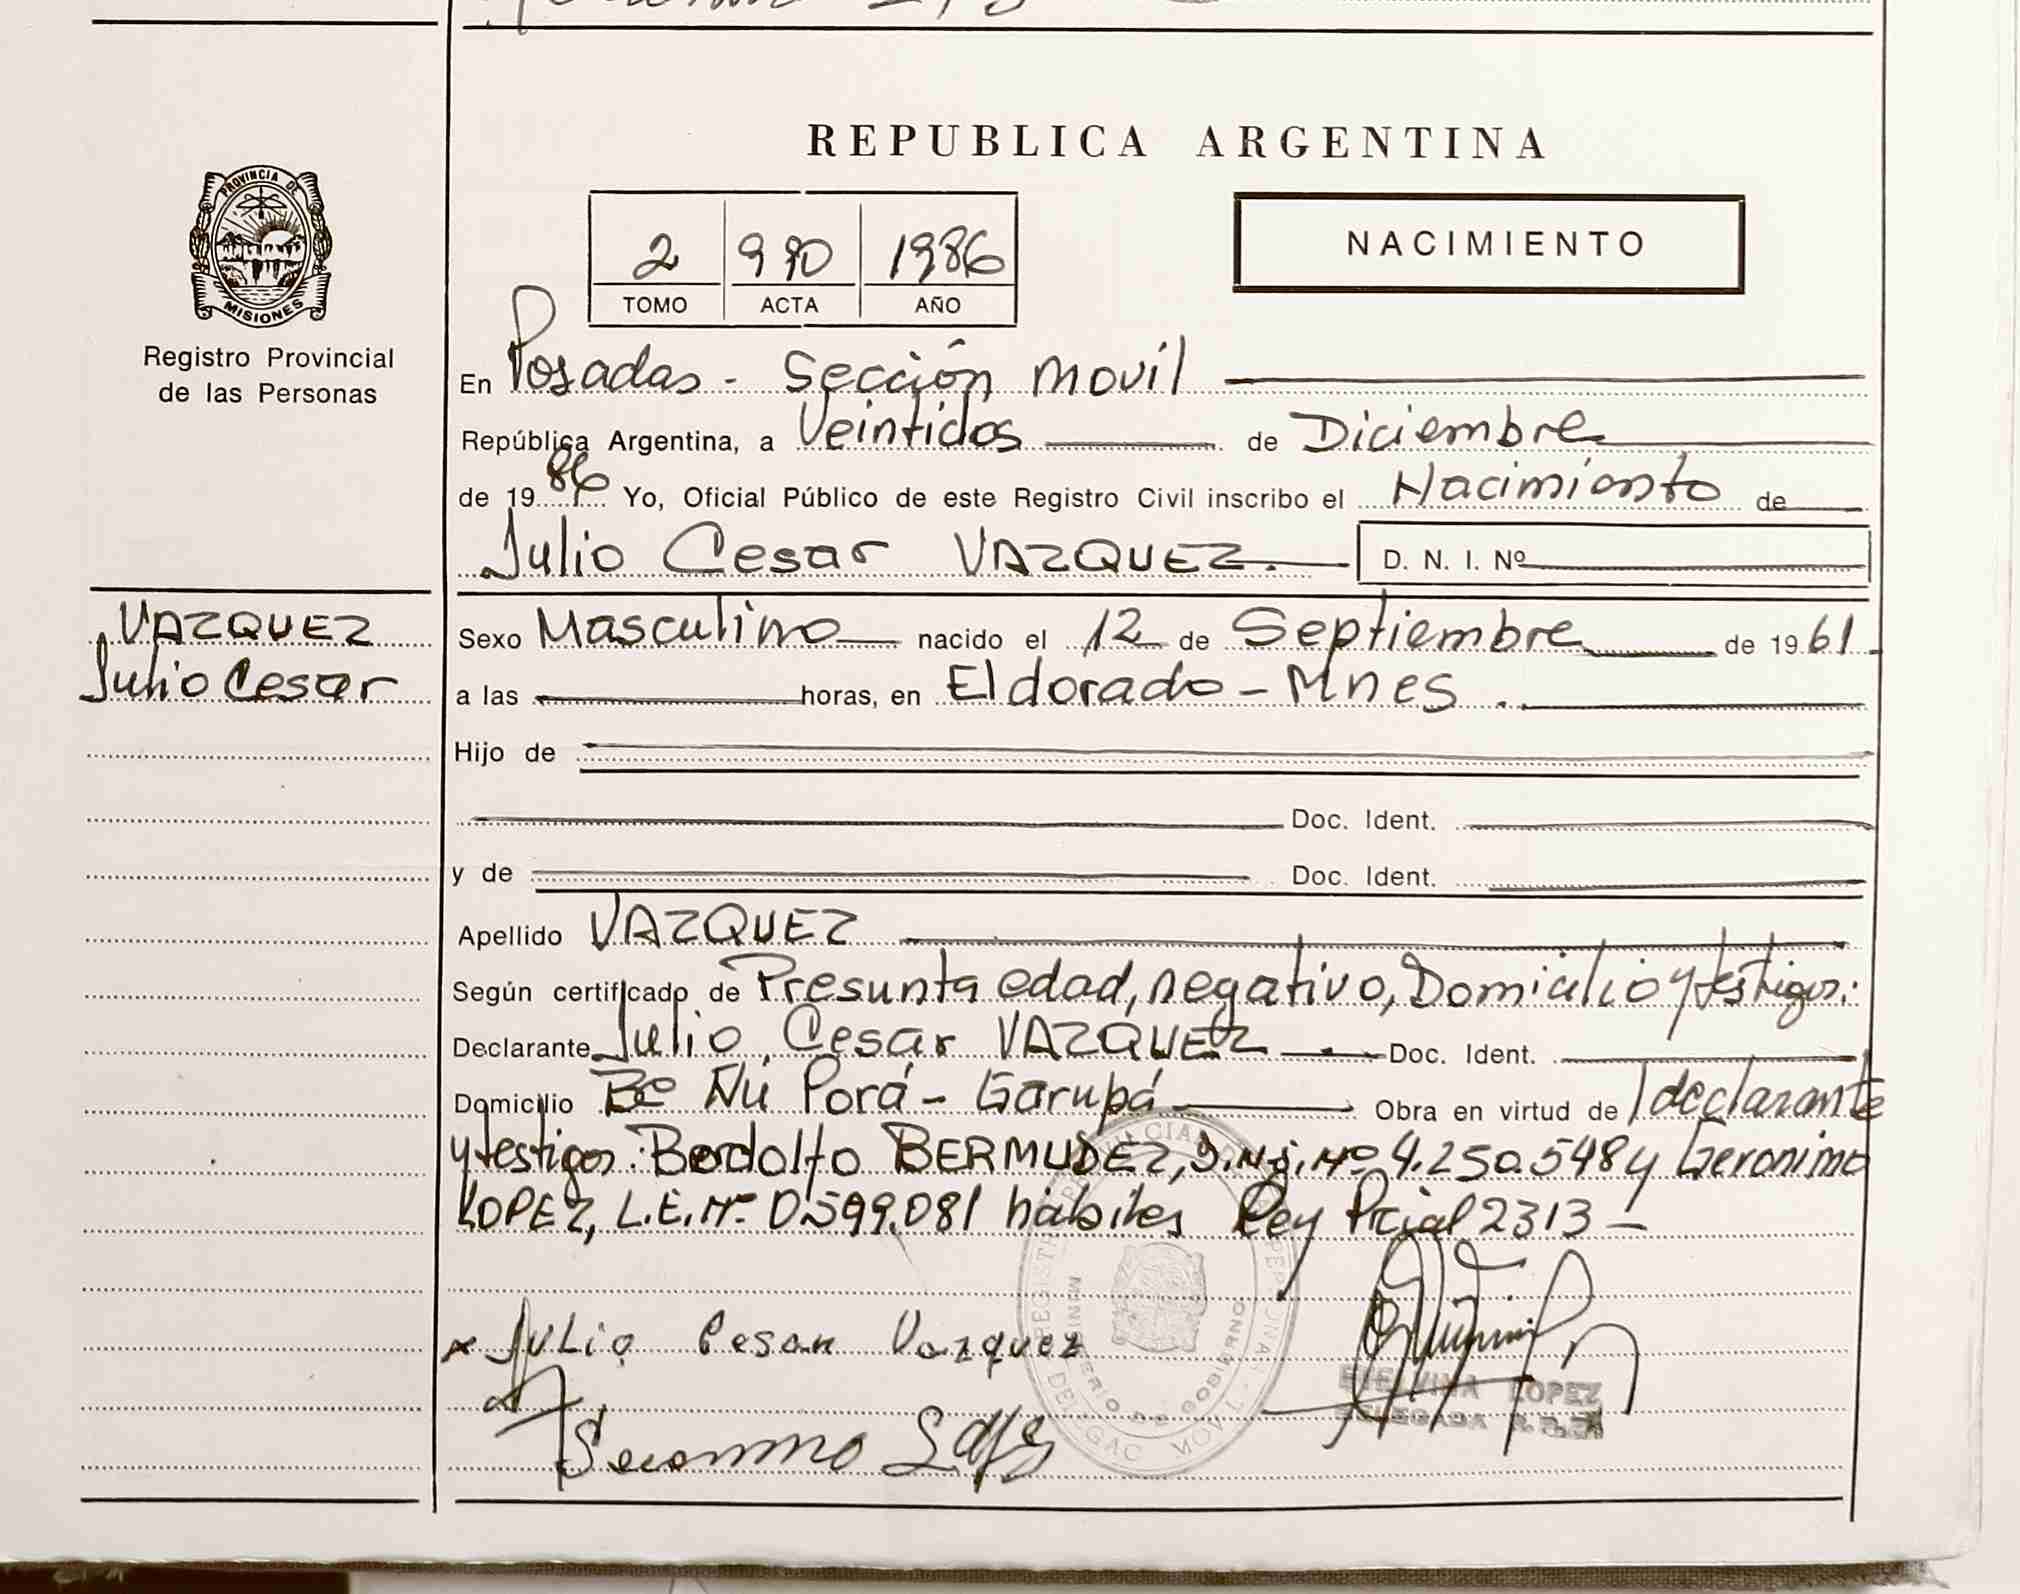 REPUBLICA ARGENTINA
PROVINCIA DE
MISIONES
Registro Provincial
de las Personas
2 990 1986
TOMO ACTA AÑO
NACIMIENTO
En Posadas - Sección movil
República Argentina, a Veintidos de Diciembre
de 1986 Yo, Oficial Público de este Registro Civil inscribo el Nacimiento de
Julio Cesar VAZQUEZ. D. N. I. Nº
VAZQUEZ
Julio Cesar
Sexo Masculino nacido el 12 de Septiembre de 1961
a las horas, en Eldorado - Mnes.
Hijo de
Doc. Ident.
y de Doc. Ident.
Apellido VAZQUEZ
Según certificado de Presunta edad, negativo, Domicilio y testigos.
Declarante Julio Cesar VAZQUEZ Doc. Ident.
Domicilio Bº Ñú Porá - Garupá Obra en virtud de declarante
y testigos: BERMUDEZ, Nº 4.250.548 y Geronimo
LOPEZ, L.E. Nº 0.599.081 habiles Ley Pcial 2313 -
Julio Cesar Vazquez
ETELVINA LOPEZ
DELEGADA
Geronimo